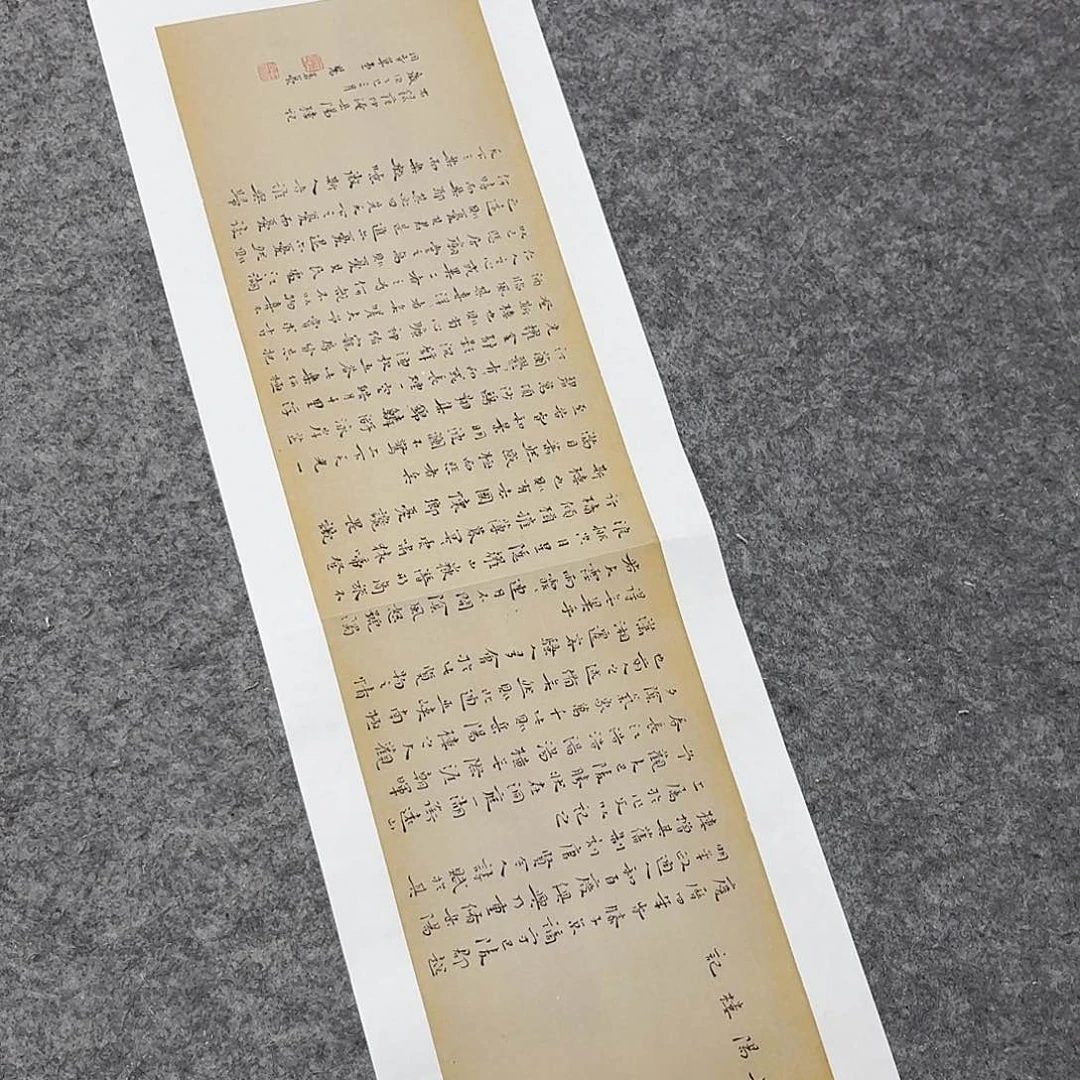 陽樓記
慶曆四年春滕子京謫守巴陵郡越
明年政通人和百廢俱興乃重脩岳陽
樓增其舊制刻唐賢今人詩賦於其
上屬予作文以記之
予觀夫巴陵勝狀在洞庭一湖銜遠山
吞長江浩浩湯湯橫無際涯朝暉
夕陰氣象萬千此則岳陽樓之大觀
也前人之述備矣然則北通巫峽南極
瀟湘遷客騷人多會於此覽物之情
得無異乎
若夫霪雨霏霏連月不開陰風怒號濁
浪排空日星隱耀山岳潛形商旅不
行檣傾楫摧薄暮冥冥虎嘯猿啼登
斯樓也則有去國懷鄉憂讒畏譏
滿目蕭然感極而悲者矣
至若春和景明波瀾不驚上下天光一
碧萬頃沙鷗翔集錦鱗游泳岸芷
汀蘭郁郁青青而或長煙一空皓月千里浮
光耀金靜影沉璧漁歌互答此樂何極
登斯樓也則有心曠神怡寵辱皆忘把
酒臨風其喜洋洋者矣嗟夫予嘗求古
仁人之心或異二者之為何哉不以物喜不
以己悲居廟堂之高則憂其民處江湖
之遠則憂其君是進亦憂退亦憂然則
何時而樂耶其必曰先天下之憂而憂後
天下之樂而樂歟噫微斯人吾誰與歸
錄范仲淹岳陽樓記
歲次乙巳三月